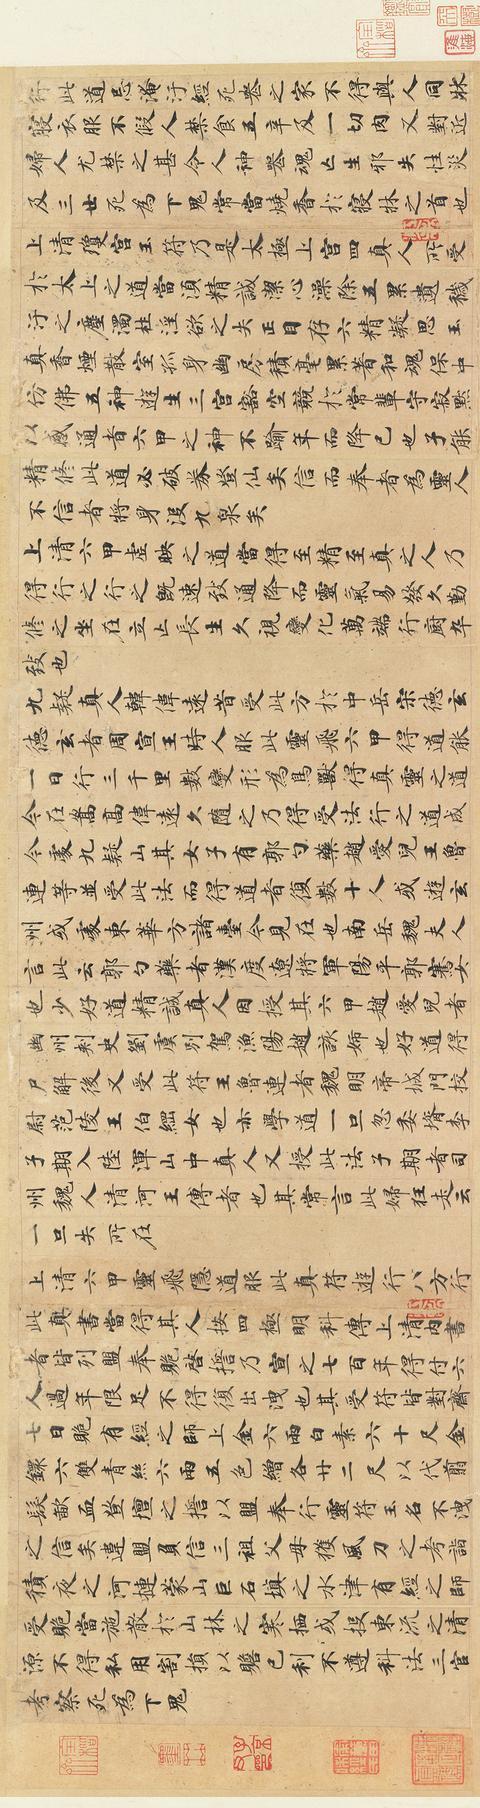 行此道忌淹汙經死喪之家不得與人同牀
寢衣服不假人禁食五辛及一切肉又對近
婦人尤禁之甚令人神喪魂亡生邪失性災
及三世死為下鬼常當燒香於寢牀之首也
上清瓊宮玉符乃是太極上宮四真人所受
於太上之道當須精誠潔心澡除五累遺穢
汙之塵濁杜淫欲之失正目存六精凝思玉
真香煙散室孤身幽房積毫累著和魂保中
仿佛五神遊生三宮豁空競於常輩守寂默
以感通者六甲之神不踰年而降己也子能
精修此道必破券登仙矣信而奉者為靈人
不信者將身沒九泉矣
上清六甲虛映之道當得至精至真之人乃
得行之行之既速致通降而靈氣易發久勤
修之坐在立亡長生久視變化萬端行廚卒
致也
九疑真人韓偉遠昔受此方於中岳宋德玄
德玄者周宣王時人服此靈飛六甲得道能
一日行三千里數變形為鳥獸得真靈之道
今在嵩高偉遠久隨之乃得受法行之道成
今處九疑山其女子有郭勺藥趙愛兒王魯
連等並受此法而得道者復數十人或遊玄
州或處東華方諸臺今見在也南岳魏夫人
言此云郭勺藥者漢度遼將軍陽平郭騫女
也少好道精誠真人因授其六甲趙愛兒者
幽州刺史劉虞別駕漁陽趙該婦也好道得
尸解後又受此符王魯連者魏明帝城門校
尉范陵王伯綱女也亦學道一旦忽委婿李
子期入陸渾山中真人又授此法子期者司
州魏人清河王傳者也其常言此婦狂走云
一旦失所在
上清六甲靈飛隱道服此真符遊行八方行
此真書當得其人按四極明科傳上清內書
者皆列盟奉贶啓誓乃宣之七百年得付六
人過年限足不得復出洩也其受符皆對齋
七日贶有經之師上金六兩白素六十尺金
鐶六雙青絲六兩五色繒各廿二尺以代翦
髮歃血登壇之誓以盟奉行靈符玉名不洩
之信矣違盟負信三祖父母獲風刀之考詣
積夜之河㨷蒙山巨石填之水津有經之師
受贶當施散於山林之寒栖或投東流之清
源不得私用割損以贍己利不遵科法三官
考察死為下鬼